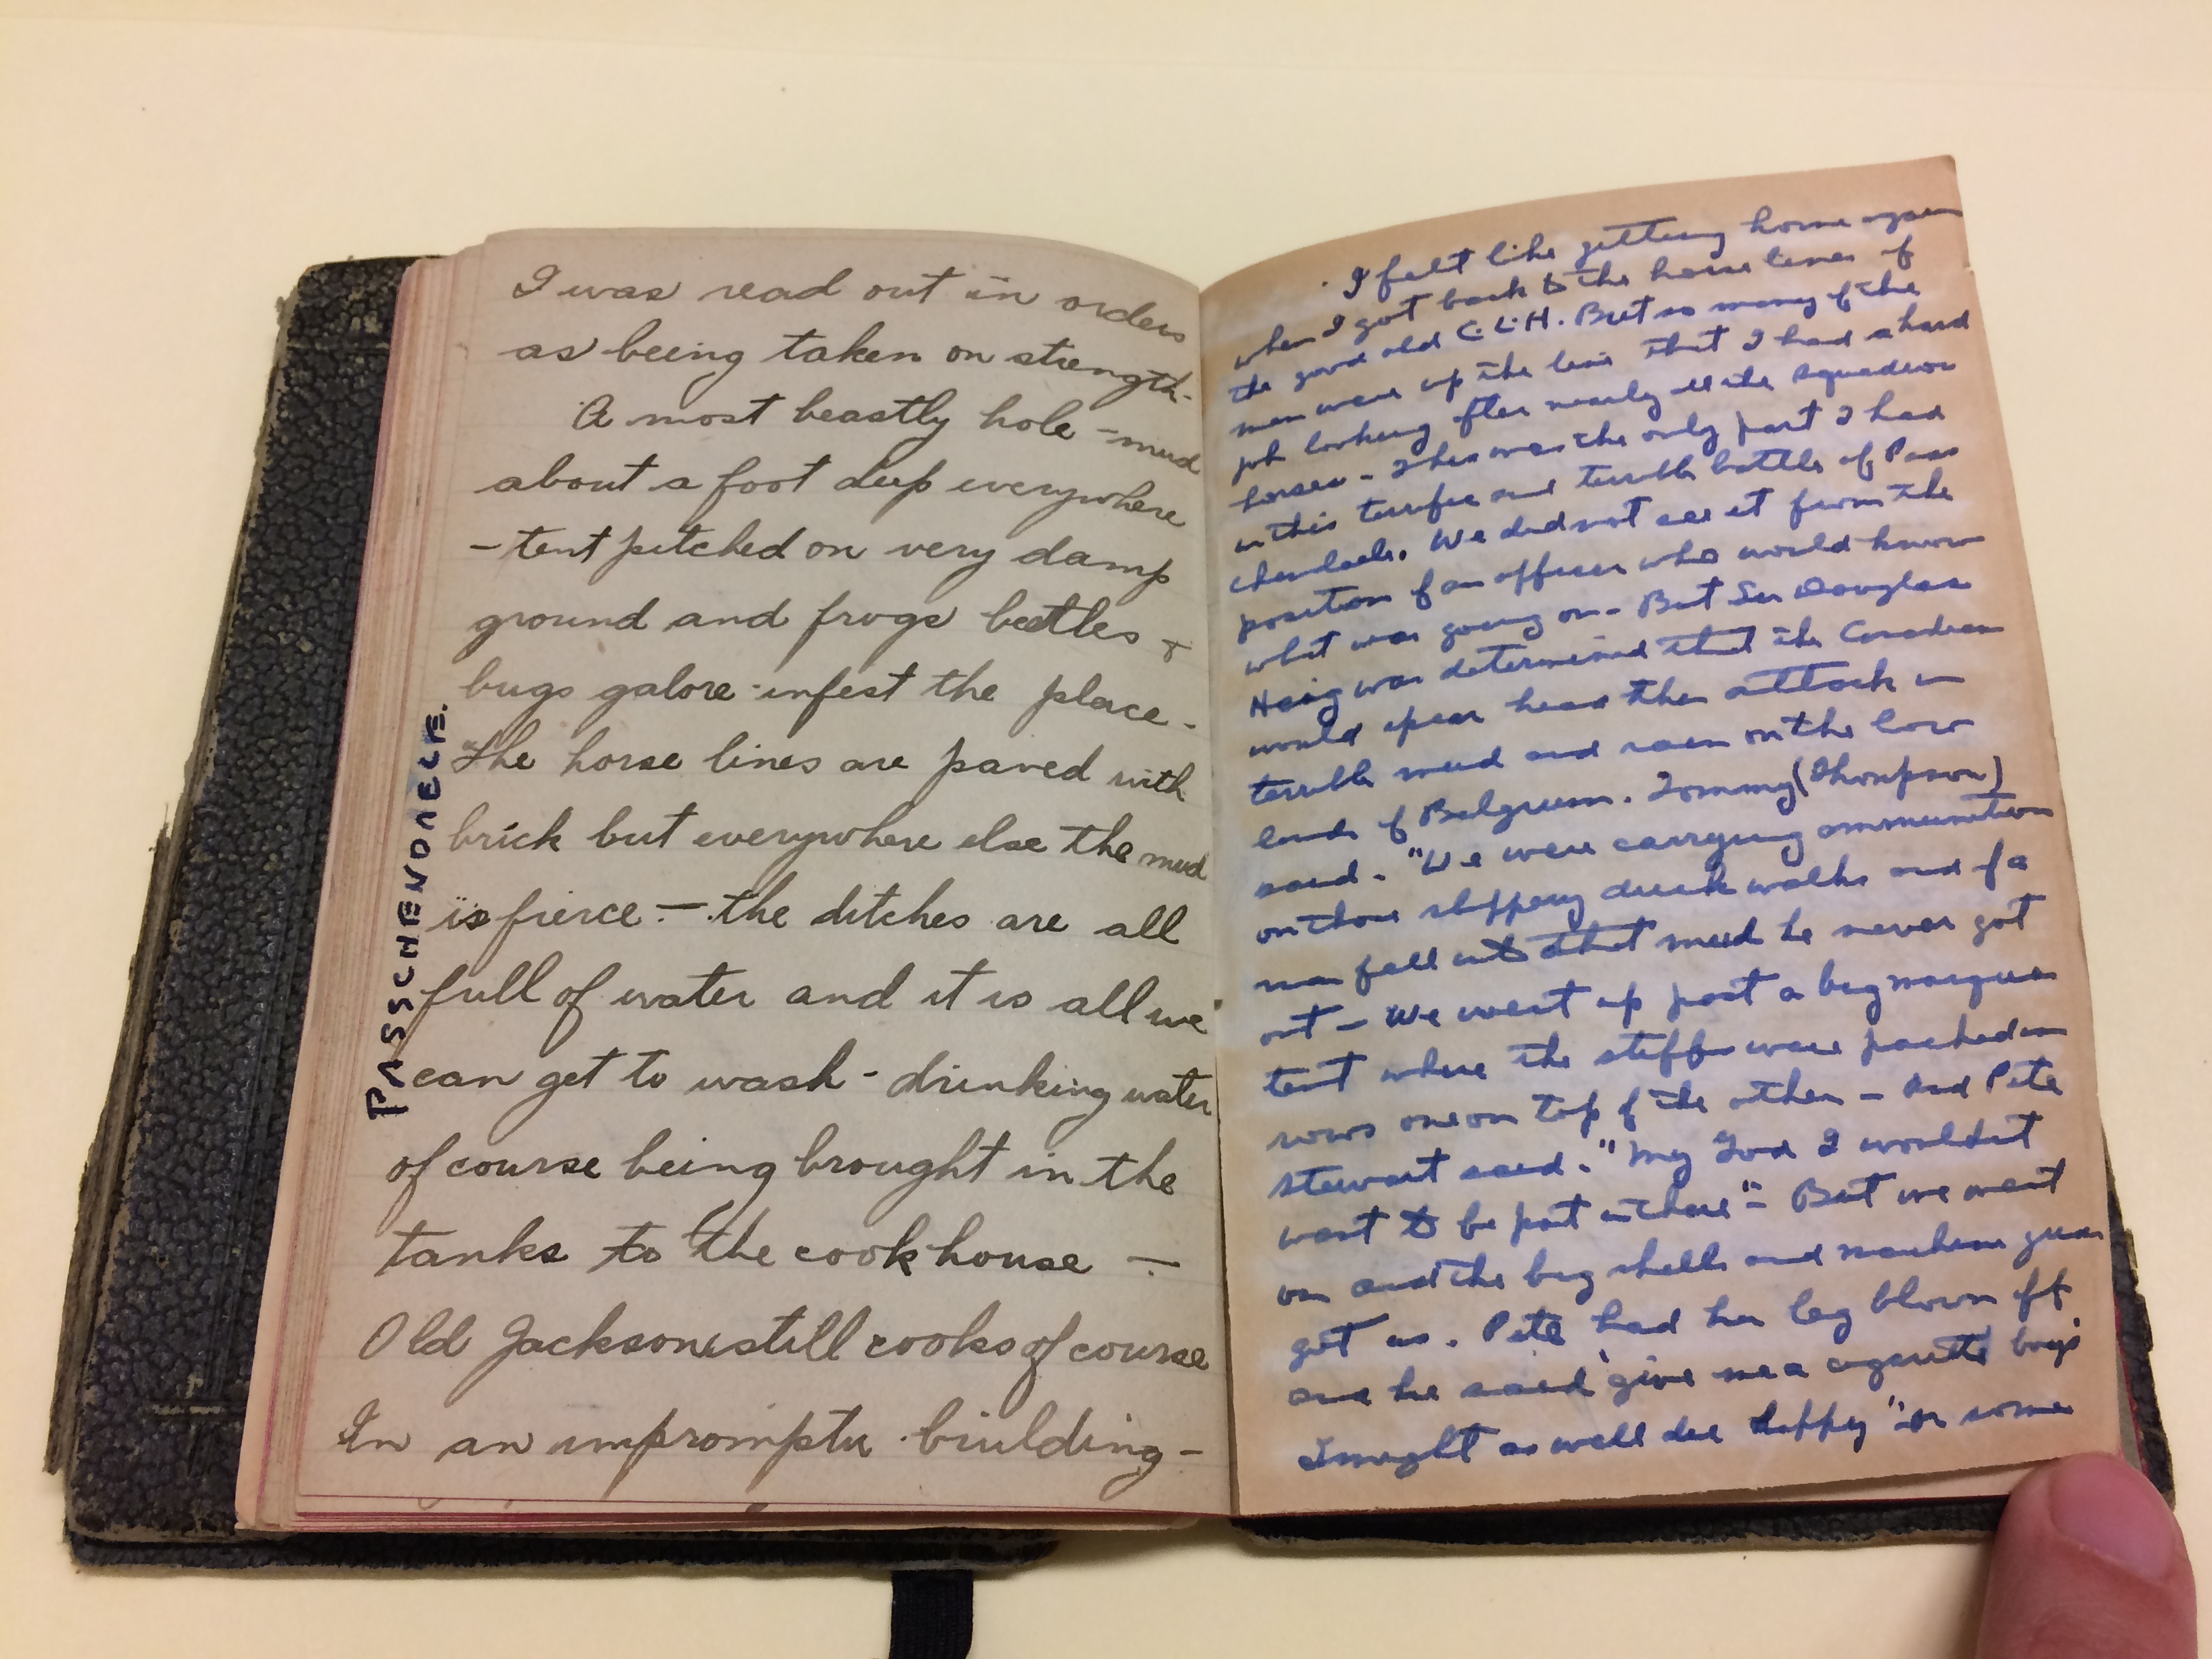 I was read out in orders
as being taken on strength.
A most beastly hole - mud
about a foot deep everywhere
- tent pitched on very damp
ground and frogs beetles +
bugs galore infest the place -
The horse lines are paved with
brick but everywhere else the mud
is fierce - the ditches are all
full of water and it is all we
can get to wash - drinking water
of course being brought in the
tanks to the cook house -
Old Jackson still cooks of course
In an impromptu building -
PASSCHENDAELE.
I felt like getting home again
when I got back to the horse lines of
the good old C.L.H. But so many of the
men were up the line that I had a hard
job looking after nearly all the squadron
horses - This was the only part I had
in this terrific and terrible battle of Pass
chendaele. We did not see it from the
position of an officer who would know
what was going on - But Sir Douglas
Haig was determined that the Canadian
would spear head the attack in
terrible mud and rain on the low
lands of Belgium. Tommy (Thompson)
said. "We were carrying ammunition
on those slippery duck walks and if a
man fell into that mud he never got
out - We went up past a big marquee
tent where the stiffs were packed in
rows one on top of the other - And Pete
Stewart said. "My God I wouldnt
want to be put in there" - But we went
on and the big shells and machine guns
got us. Pete had his leg blown off
and he said 'give me a cigarette boys
I might as well die happy" or some